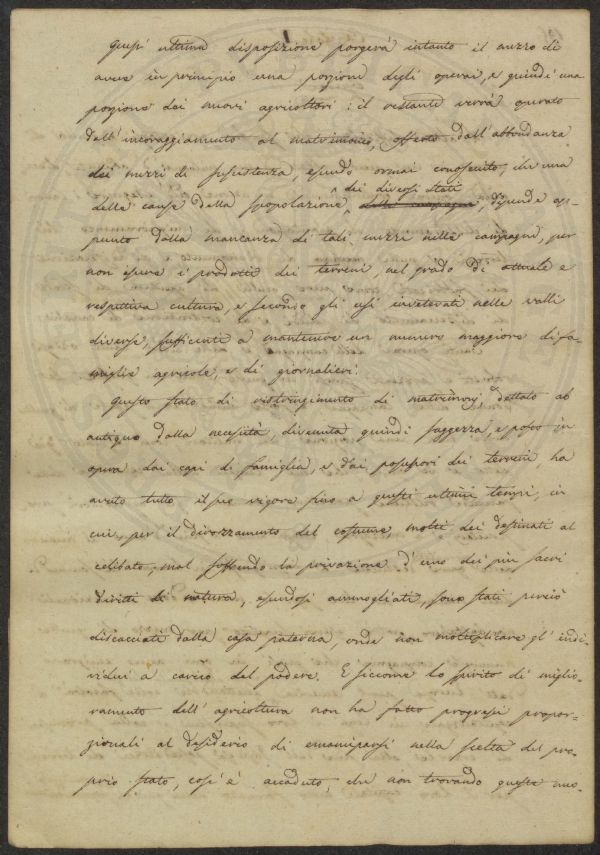 Quest' ultima disposizione porgerà intanto il mezzo di
avere in principio una porzione degli operai, e quindi una
porzione dei nuovi agricoltori: il restante verrà operato
dall'incoraggiamento al matrimonio, offerto dall'abbondanza
dei mezzi di sussistenza, essendo ormai conosciuto, che una
delle cause della spopolazione dei diversi stati delle campagne, dipende ap-
punto dalla mancanza di tali mezzi nelle campagne, per
non essere i prodotti dei terreni, nel grado di attuale e
respettiva cultura, e secondo gli usi inveterati nelle valli
diverse, sufficienti a mantenere un numero maggiore di fa-
miglie agricole, e di giornalieri.
Questo stato di restringimento di matrimonj, dettato ab
antiquo dalla necessità, divenuta quindi saggezza, e posto in
opera dai capi di famiglia, e dai possessori dei terreni, ha
avuto tutto il suo vigore fino a questi ultimi tempi, in
cui, per il dirozzamento del costume, molti dei destinati al
celibato, mal soffrendo la privazione d'uno dei più sacri
diritti di natura, essendosi ammogliati, sono stati perciò
discacciati dalla casa paterna, onde non moltiplicare gl'indi-
vidui a carico del podere. E siccome lo spirito di miglio-
ramento dell'agricoltura non ha fatto progressi propor-
zionali al desiderio di emanciparsi nella scelta del pro-
prio stato, così è accaduto, che non trovando queste nuo-